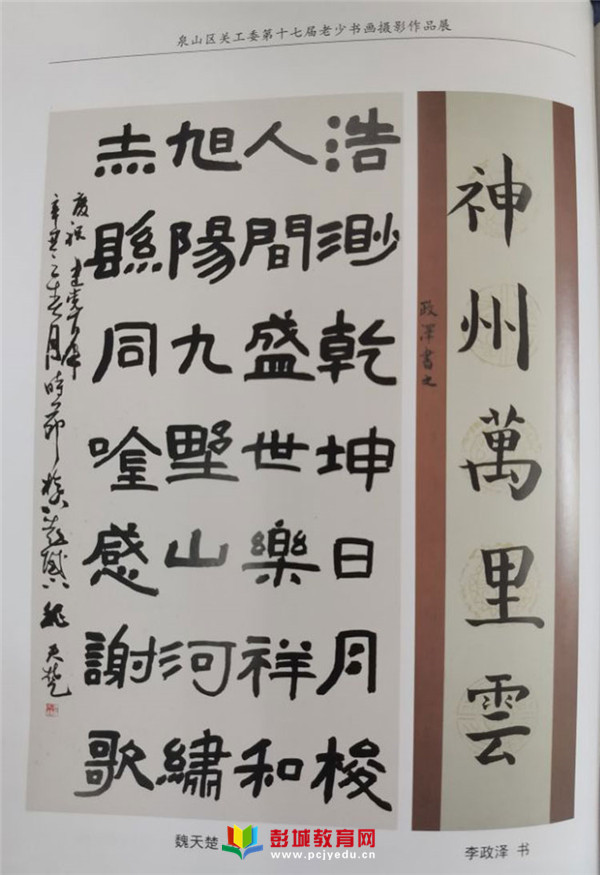 泉山区关工委第十七届老少书画摄影作品展
神州萬里雲
政澤書之
浩渺乾坤日月梭
人間盛世樂祥和
旭陽九墅山河繡
赤縣同唫感謝歌
慶祝建黨百年
辛丑之春月時節 魏天楚
魏天楚
李政泽 书
彭城教育网
www.pcjyedu.cn